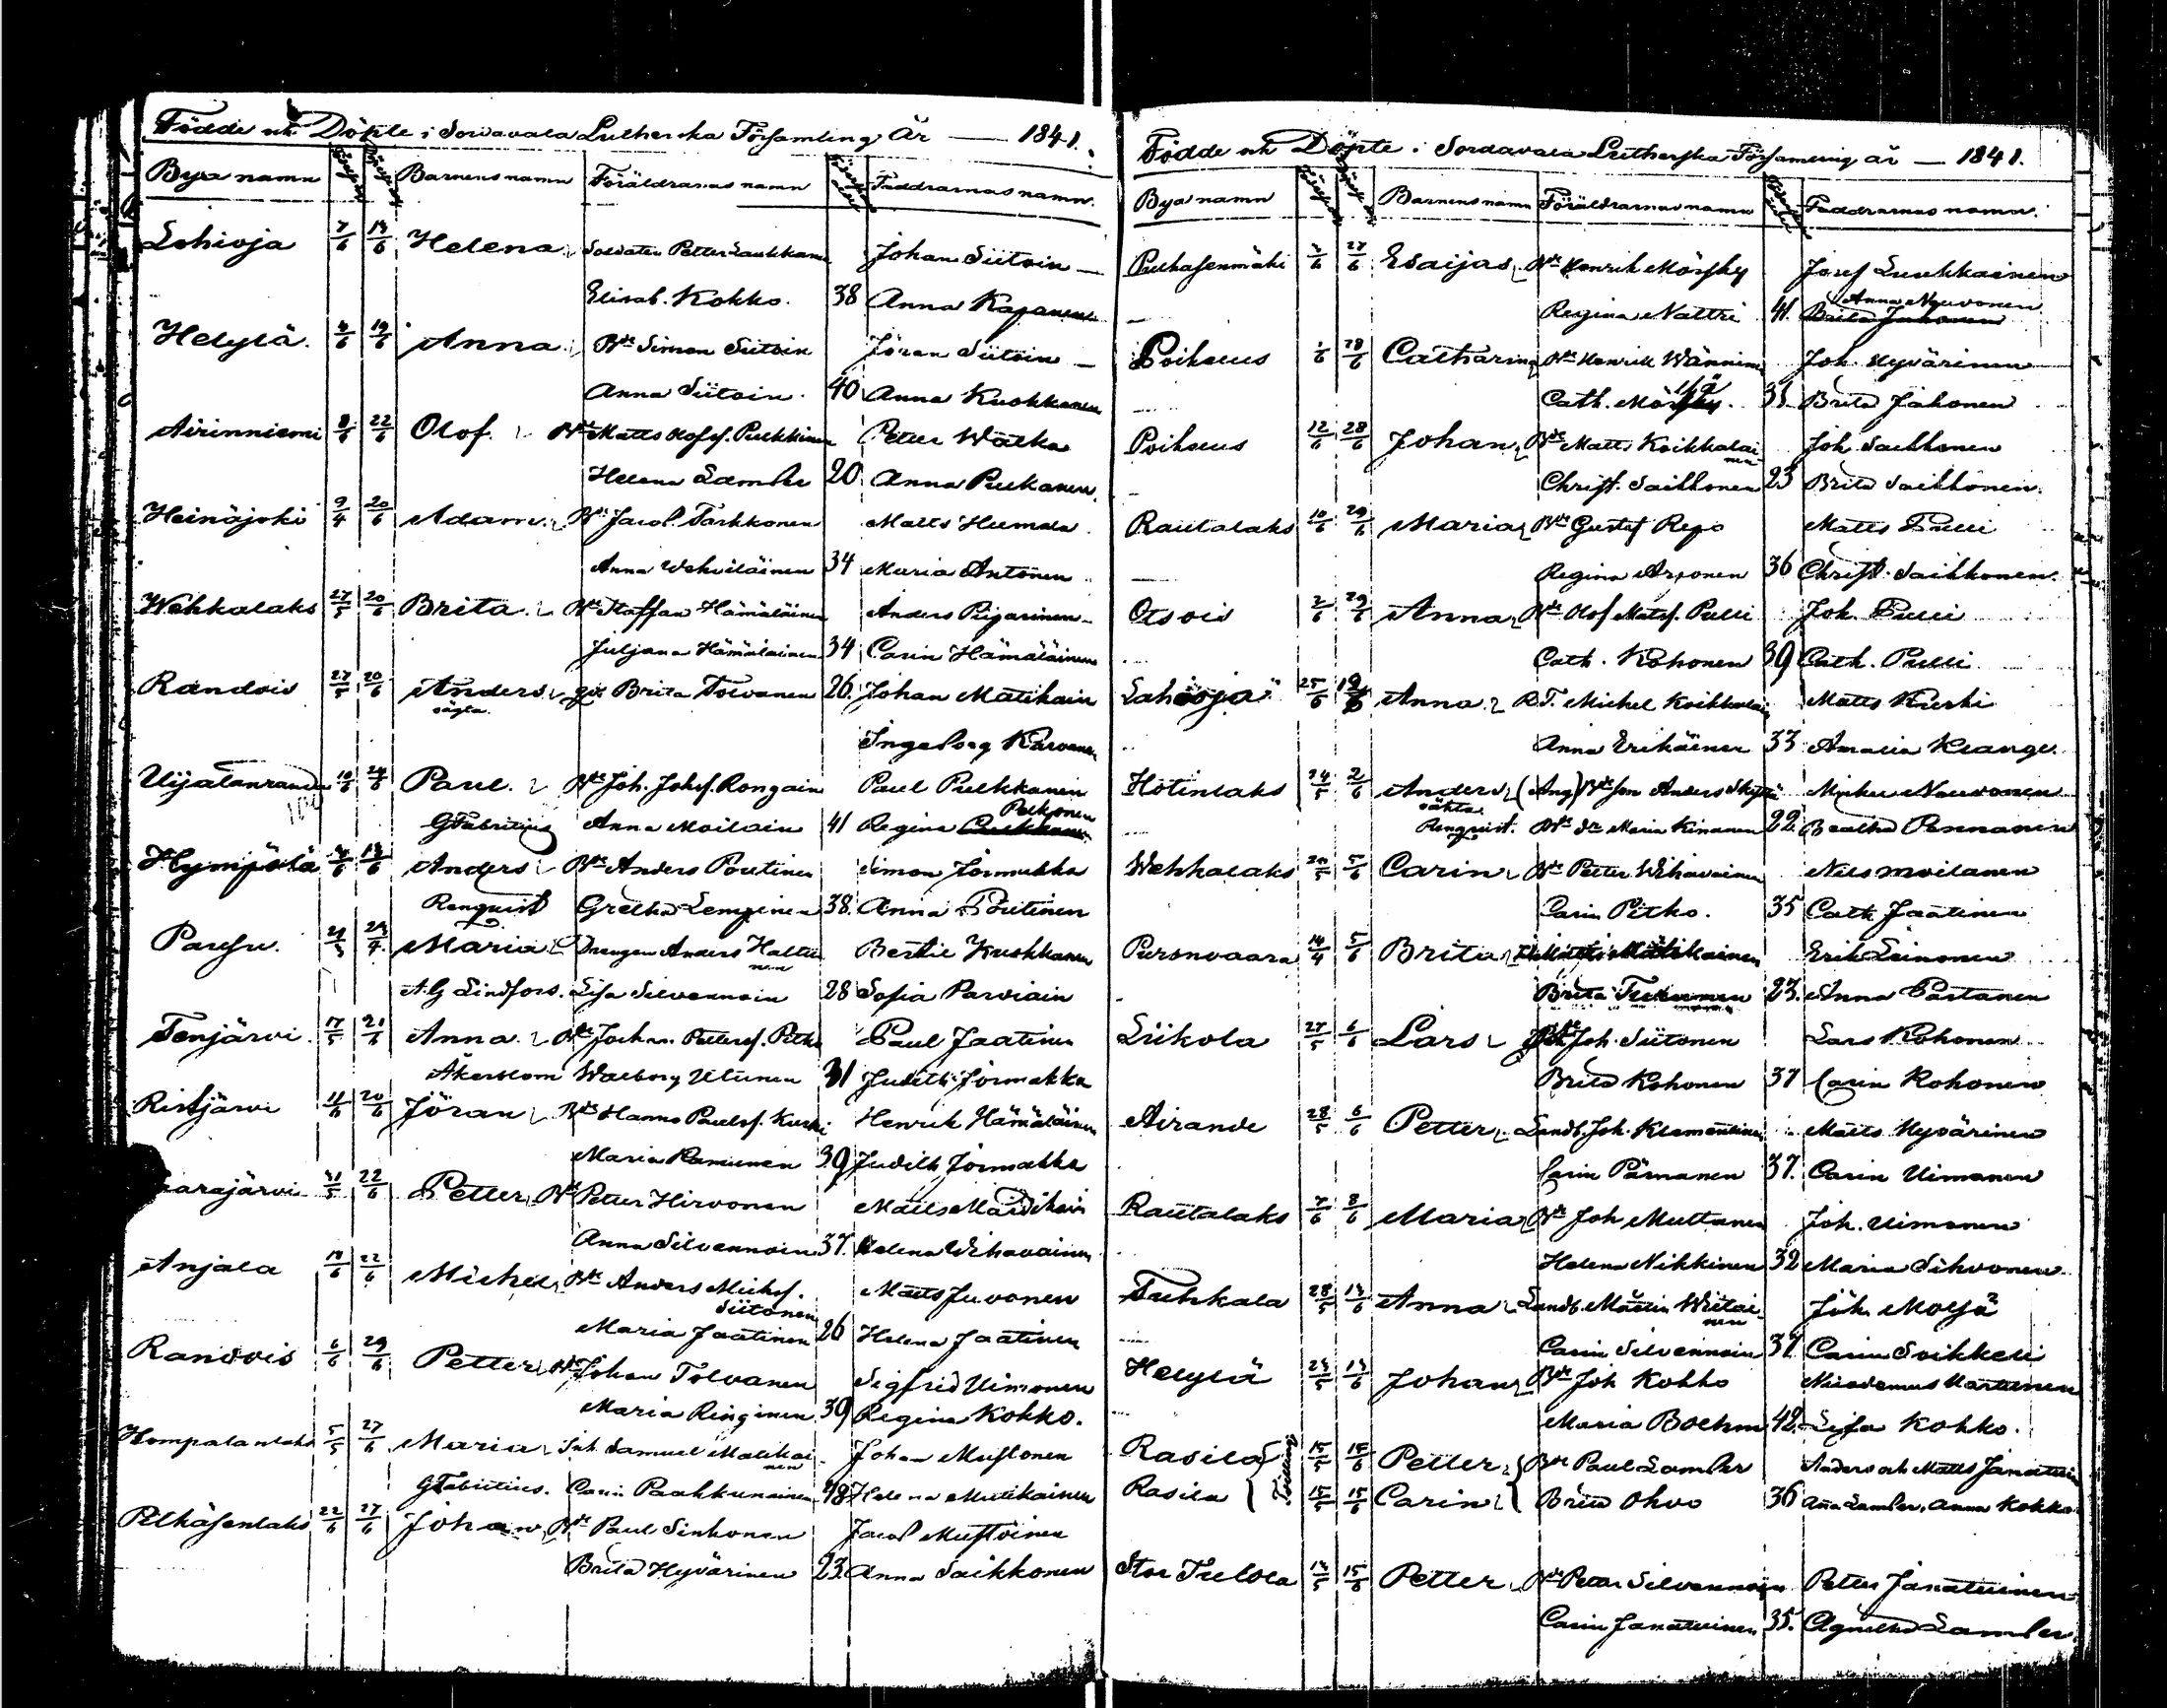 Födde och Döpte i Sordavala Lutherska Församling År — 1841.
Bya namn Barnens namn Föräldrarnas namn Faddrarnas namn.
Lohioja 7/6 13/6 Helena Soldaten Petter Laukkanen Johan Siitoin
Elisab. Kokko. 38 Anna Kapanen
Helylä 4/6 19/6 Anna Bde Simon Siitoin Jöran Siitoin
Anna Siitoin. 40 Anna Kuokkanen
Airinniemi 8/6 22/6 Olof. Bde Matts Olofss. Pulkkinen Petter Watka
Helena Lamber 20 Anna Pulkanen.
Heinäjoki 9/4 20/6 Adam. Bde Jacob Tarkkonen Matts Humala
Anna Wehviläinen 34 Maria Antonen
Wehkalaks 27/5 20/6 Brita. Bde Staffan Hämäläinen Anders Pijarinen
Juljana Hämäläinen 34 Carin Hämäläinen
Randois 27/5 20/6 Anders Brita Tolvanen 26. Johan Matikain
oägta.
Ingeborg Karvonen
Uijalanranda 10/6 24/6 Paul. Bde Joh. Johss. Rongain Paul Pulkkanen
GFabritius Anna Moilain 41 Regina Pulkonen
Hympölä 13/6 Anders Bde Anders Poutinen Simon Jormakka
Renquist Gretha Lempinen 38. Anna Poutinen
Pausu. Maria Drengen Anders Haltunen Bertil Kuokkanen
A.G Lindfors. Lisa Silvennoin 28 Sofia Parviain
Tenjärvi. 17/5 21/6 Anna. Bde Johan Petterss. Pitko Paul Jaatinen
Åkerblom Walborg Ulunen 31 Judith Jormakka
Ristjärvi 11/6 20/6 Jöran Bde Hanns Paulss. Kurki Henrik Hämäläinen
Maria Ramunen 39 Judith Jormakka
arajärvi 31/5 22/6 Petter Bde Petter Hirvonen Matts
Anna Silvennoin 37. Helena Wihavainen
Anjala 22/6 Michel Bde Anders Michss. Siitonen Matts Juvonen
Maria Jaatinen 26 Helena Jaatinen
Randois 6/6 29/6 Petter Bde Johan Tolvanen Sigfrid Uimonen
Maria Ringinen. 39 Regina Kokko.
Hompalanlaks 5/5 27/6 Maria Inh. Samuel Matikainen Johan Mustonen
GFabritius. Carin Paakkunainen 48 Helena Mutikainen
Pelkäsenlaks 22/6 27/6 Johan Bde Paul Sinkonen Jacob Mustoinen
Brita Hyvärinen 23. Anna Saikkonen
Födde och Döpte i Sordavala Lutherska Församling år — 1841.
Bya namn Barnens namn Föräldrarnas namn Faddrarnas namn.
Pulhasenmäki 27/6 Esaijas Bde Henrik Mörsky Josef Luukkainen
Regina Nättri 41. Anna Nyuvonen
Poiksuus 1/6 28/6 Catharina Bde Henrik Wänninen Joh. Hyvärinen
Cath. Mörskyä. Brita Jähonen
Poiksuus 12/6 28/6 Johan Bde Matts Koikkalainen Joh. Saikkonen
Christ. Saikkonen 23 Brita Saikkonen.
Rautalaks 10/6 29/6 Maria Bde Gustaf Repo Matts Pulli
Regina Arponen 36 Christ. Saikkonen.
Otsois 2/6 29/6 Anna Bde Olof Matss. Pulli Joh. Pulli
Cath. Kohonen 39 Cath. Pulli
Lahioja Anna. R.T. Michel Koikkalain Matts Kurki
Anna Erikäinen 33 Amalia Klange.
Hotinlaks 24/5 2/6 Anders (Ang) Bde son Anders
oäkta
Renquist. Bde Dr Maria Kinanen 22. Beatha Pennanen
Wehkalaks 5/6 Carin Bde Petter Wihavainen Nils Moilanen
Carin Pitko. 35 Cath. Jaatinen
Pursnvaara 14/4 5/6 Brita Erik Leinonen
Brita 23. Anna Partanen
Liikola 27/5 6/6 Lars Bde Joh. Siitonen Lars Kohonen
Brita Kohonen 37 Carin Kohonen
Airanne 28/5 6/6 Petter Landb. Joh. Klementtinen Matts Hyvärinen
Carin Pärnanen 37. Carin Uimonen
Rautalaks 7/6 8/6 Maria Bde Joh Multanen Joh. Uimonen
Helena Nikkinen 32 Maria Sihvonen
Tuhkala 28/5 13/6 Anna Landb. Mårtin Wiitainen Joh. Moljä
Carin Silvennoin 37 Carin Soikkeli
Helylä 23/5 13/6 Johan Bde Joh Kokko Nicodemus Martinen
Maria Boehm 42. Lisa Kokko.
Rasila 15/5 15/6 Petter Bde Paul Lamber Anders och Matts Janatuin
Rasila 15/5 15/6 Carin Brita Ohvo 36 Anna Lamber, Anna Kokko
Tvillingar
Stor Tulola 13/5 15/6 Petter Bde Petter Silvennoin Petter Janatuinen
Carin Janatuinen 35. Agnetha Lamber.